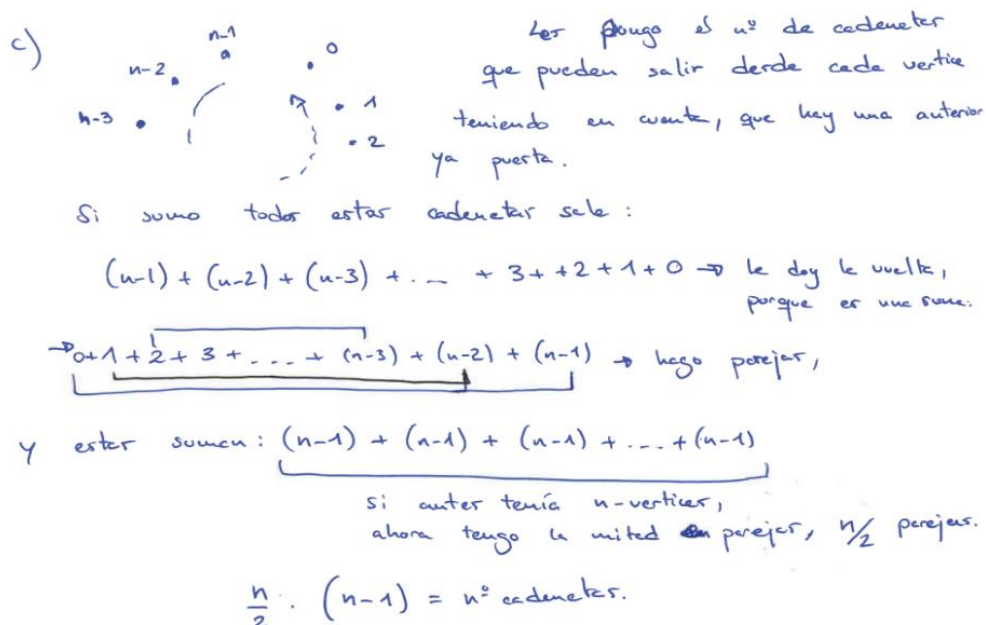 c)
n-1
n-2
n-3
0
1
2
Les pongo el nº de cadenetas
que pueden salir desde cada vertice
teniendo en cuenta, que hay una anterior
ya puesta.
Si sumo todas estas cadenetas sale :
(n-1) + (n-2) + (n-3) + .... + 3 + +2 + 1 + 0 → le doy la vuelta,
porque es una suma.
→ 0+1+2+3+....+ (n-3) + (n-2) + (n-1) → hago parejas,
Y estas suman : (n-1) + (n-1) + (n-1) + .... + (n-1)
si antes tenía n-vertices,
ahora tengo la mitad en parejas, n/2 parejas.
n/2 . (n-1) = nº cadenetas.